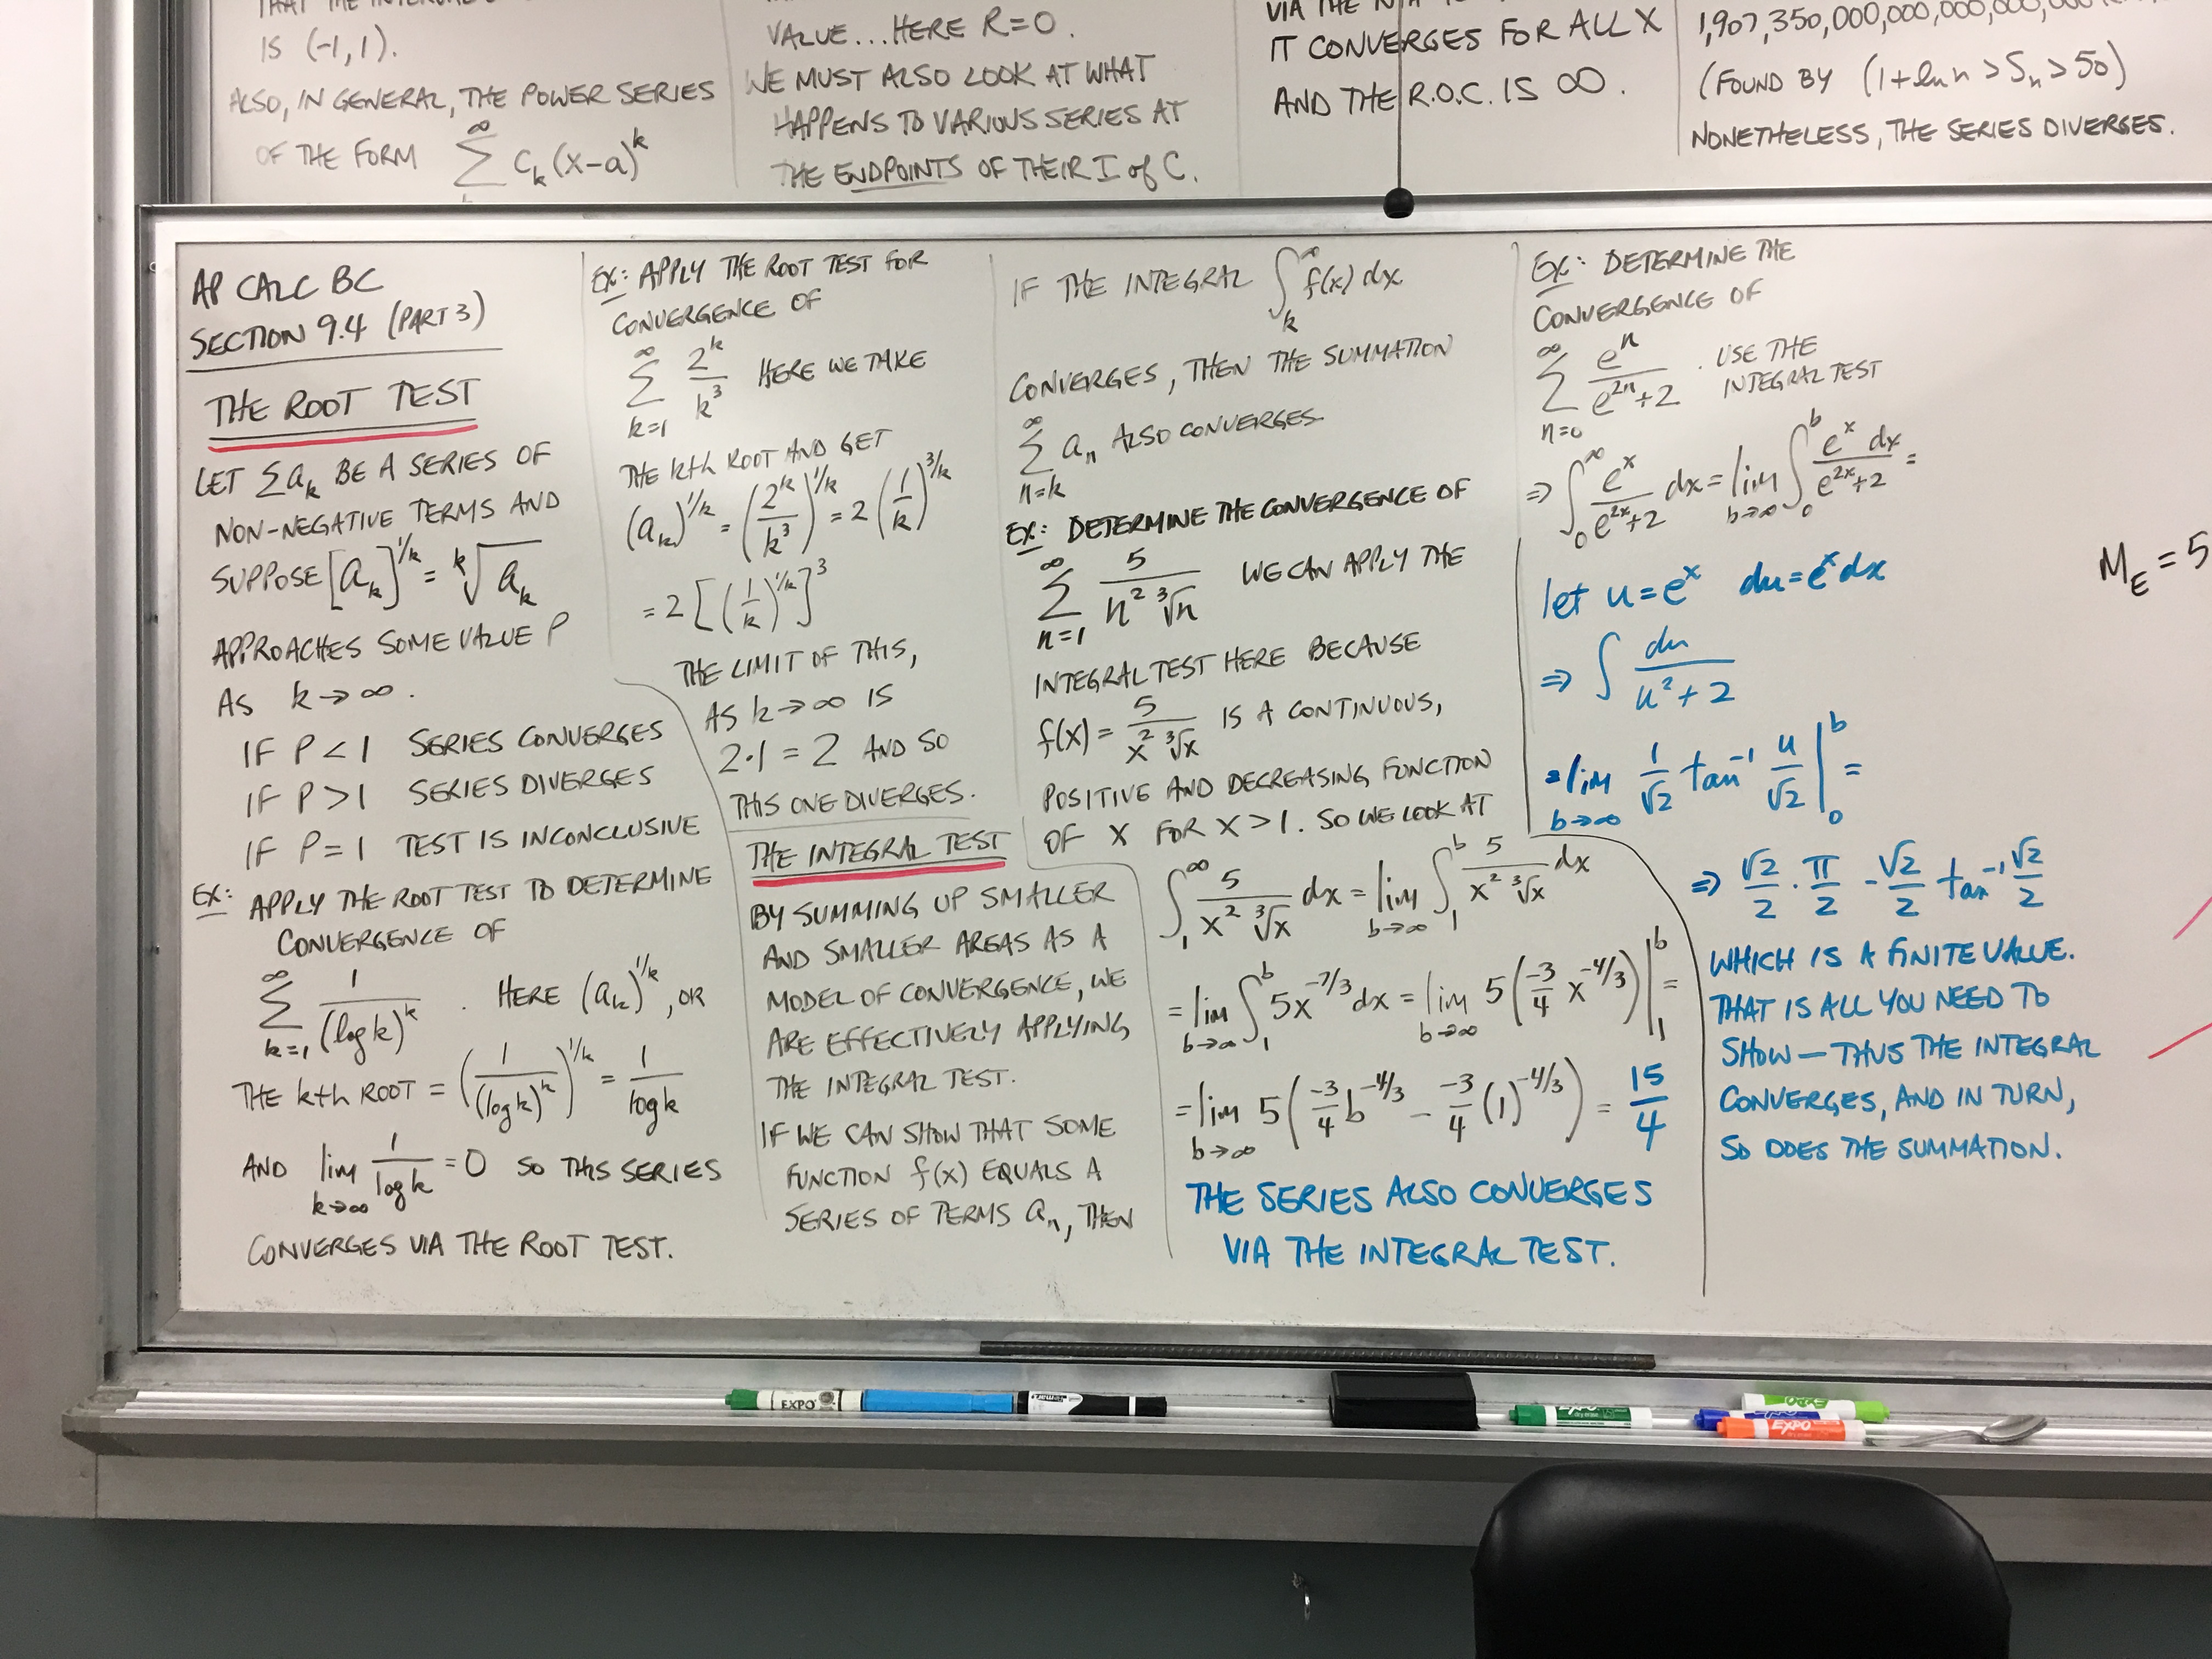 IS (-1, 1).
ALSO, IN GENERAL, THE POWER SERIES
OF THE FORM ∞ Σ Cₖ(x-a)ᵏ
VALUE...HERE R=0.
WE MUST ALSO LOOK AT WHAT
HAPPENS TO VARIOUS SERIES AT
THE ENDPOINTS OF THEIR I of C.
VIA THE
IT CONVERGES FOR ALL X
AND THE R.O.C. IS ∞.
1,907,350,000,000,000,000,000
(FOUND BY (1+ln n > Sₙ > 50)
NONETHELESS, THE SERIES DIVERGES.
AP CALC BC
SECTION 9.4 (PART 3)
THE ROOT TEST
LET Σaₖ BE A SERIES OF
NON-NEGATIVE TERMS AND
SUPPOSE [aₖ]^(1/k) = ᵏ√aₖ
APPROACHES SOME VALUE P
AS k→∞.
IF P < 1 SERIES CONVERGES
IF P > 1 SERIES DIVERGES
IF P = 1 TEST IS INCONCLUSIVE
EX: APPLY THE ROOT TEST TO DETERMINE
CONVERGENCE OF
∞ Σ k=1 1/(log k)ᵏ . HERE (aₖ)^(1/k), OR
THE kth ROOT = (1/(log k)ᵏ)^(1/k) = 1/log k
AND lim k→∞ 1/log k = 0 SO THIS SERIES
CONVERGES VIA THE ROOT TEST.
EX: APPLY THE ROOT TEST FOR
CONVERGENCE OF
∞ Σ k=1 2ᵏ/k³ HERE WE TAKE
THE kth ROOT AND GET
(aₖ)^(1/k) = (2ᵏ/k³)^(1/k) = 2(1/k)^(3/k)
= 2[(1/k)^(1/k)]³
THE LIMIT OF THIS,
AS k→∞ IS
2·1 = 2 AND SO
THIS ONE DIVERGES.
THE INTEGRAL TEST
BY SUMMING UP SMALLER
AND SMALLER AREAS AS A
MODEL OF CONVERGENCE, WE
ARE EFFECTIVELY APPLYING
THE INTEGRAL TEST.
IF WE CAN SHOW THAT SOME
FUNCTION f(x) EQUALS A
SERIES OF TERMS aₙ, THEN
IF THE INTEGRAL ∫ₖ^∞ f(x) dx
CONVERGES, THEN THE SUMMATION
∞ Σ n=k aₙ ALSO CONVERGES
EX: DETERMINE THE CONVERGENCE OF
∞ Σ n=1 5/(n² ³√n) WE CAN APPLY THE
INTEGRAL TEST HERE BECAUSE
f(x) = 5/(x² ³√x) IS A CONTINUOUS,
POSITIVE AND DECREASING FUNCTION
OF X FOR X > 1. SO WE LOOK AT
∫₁^∞ 5/(x² ³√x) dx = lim b→∞ ∫₁^b 5/(x² ³√x) dx
= lim b→∞ ∫₁^b 5x^(-7/3) dx = lim b→∞ 5(-3/4 x^(-4/3)) |₁^b =
= lim b→∞ 5(-3/4 b^(-4/3) - -3/4 (1)^(-4/3)) = 15/4
THE SERIES ALSO CONVERGES
VIA THE INTEGRAL TEST.
EX: DETERMINE THE
CONVERGENCE OF
∞ Σ n=0 eⁿ/(e²ⁿ+2) . USE THE
INTEGRAL TEST
⇒ ∫₀^∞ eˣ/(e²ˣ+2) dx = lim b→∞ ∫₀^b eˣ dx/(e²ˣ+2) =
let u = eˣ du = eˣdx
⇒ ∫ du/(u²+2)
= lim b→∞ 1/√2 tan⁻¹ u/√2 |₀^b =
⇒ √2/2 · π/2 - √2/2 tan⁻¹ √2/2
WHICH IS A FINITE VALUE.
THAT IS ALL YOU NEED TO
SHOW — THUS THE INTEGRAL
CONVERGES, AND IN TURN,
SO DOES THE SUMMATION.
M_E = 5
EXPO
EXPO
EXPO
EXPO